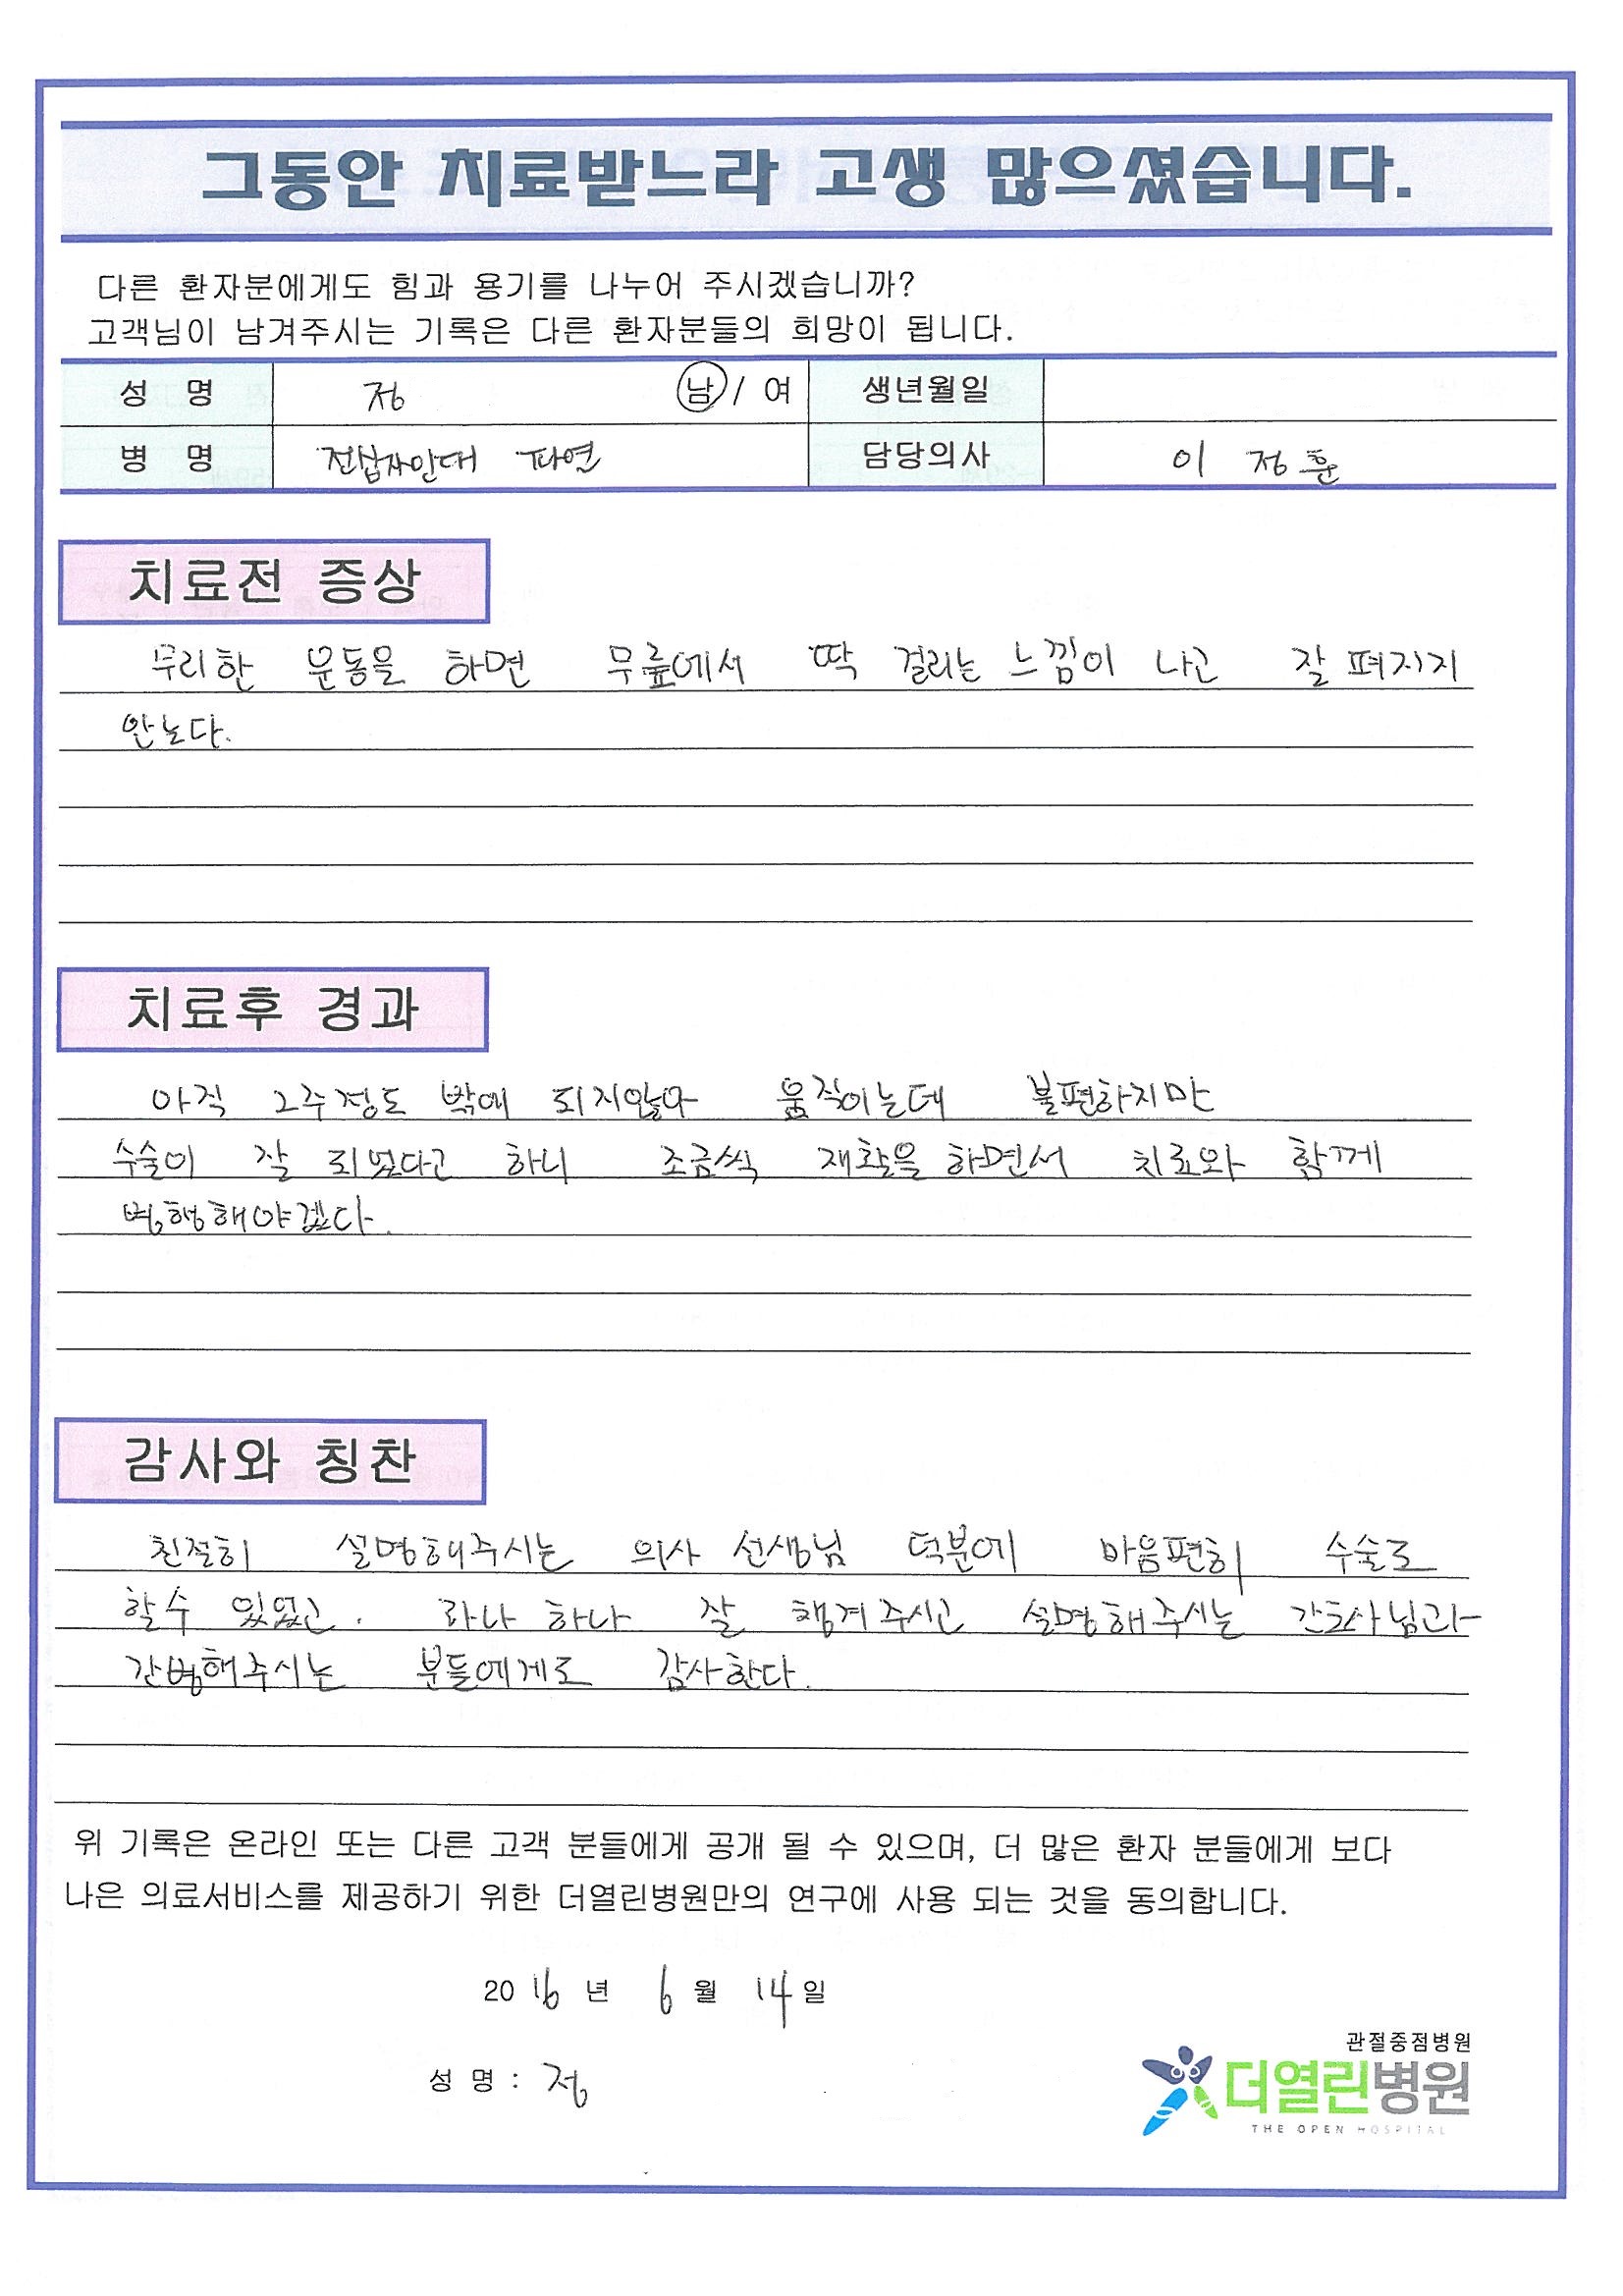 그동안 치료받느라 고생 많으셨습니다.
다른 환자분에게도 힘과 용기를 나누어 주시겠습니까?
고객님이 남겨주시는 기록은 다른 환자분들의 희망이 됩니다.
성 명 정 남 / 여 생년월일
병 명 전십자인대 파열 담당의사 이 정 훈
치료전 증상
무리한 운동을 하면 무릎에서 딱 걸리는 느낌이 나고 잘 펴지지
안는다.
치료후 경과
아직 2주정도 밖에 되지않아 움직이는데 불편하지만
수술이 잘 되었다고 하니 조금씩 재활을 하면서 치료와 함께
병행해야겠다.
감사와 칭찬
친절히 설명해주시는 의사 선생님 덕분에 마음편히 수술도
할수 있었고. 하나 하나 잘 챙겨주시고 설명해주시는 간호사님과
간병해주시는 분들에게도 감사한다.
위 기록은 온라인 또는 다른 고객 분들에게 공개 될 수 있으며, 더 많은 환자 분들에게 보다
나은 의료서비스를 제공하기 위한 더열린병원만의 연구에 사용 되는 것을 동의합니다.
2016 년 6 월 14 일
성 명 : 정
관절중점병원
더열린병원
THE OPEN HOSPITAL